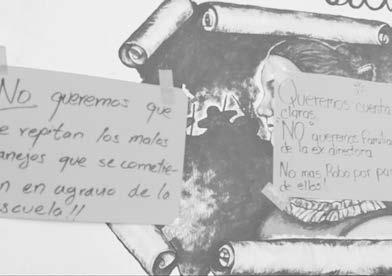 NO queremos que
e repitan los malos
anejos que se cometie-
n en agravo de la
scuela!!
Queremos cuenta
claras.
NO queremos familia
de la ex directora
No mas Robo por par
de ellos!